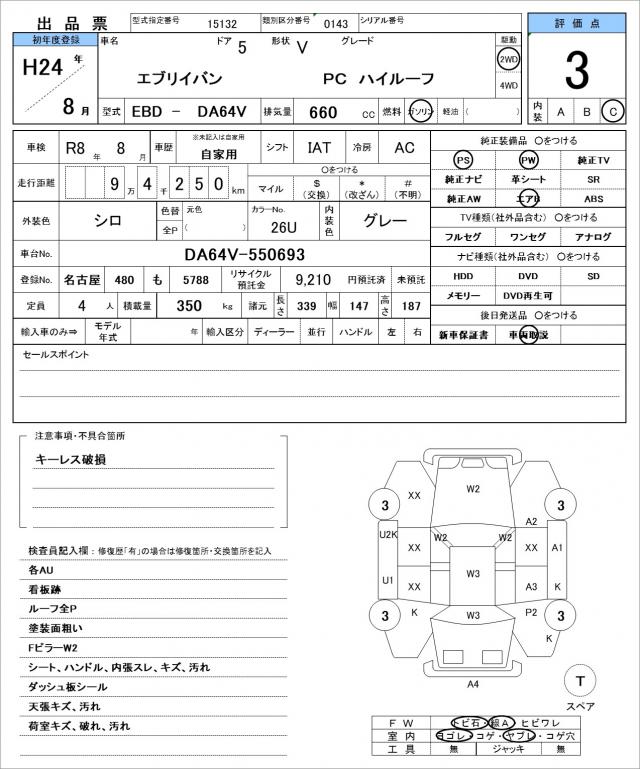 出品票 型式指定番号 15132 類別区分番号 0143 シリアル番号
評価点
3
内装 A B C
初年度登録 車名 ドア 5 形状 V グレード 駆動
H24 年 8 月
エブリイバン PC ハイルーフ
2WD
4WD
型式 EBD － DA64V 排気量 660 cc 燃料 ガソリン 軽油 （ ）
車検 R8 年 8 月 車歴 ※未記入は自家用 自家用 シフト IAT 冷房 AC
走行距離 9 万 4 千 2 5 0 km
〇をつける
マイル $ (交換) * (改ざん) # (不明)
外装色 シロ 色替 全P 元色 （ ） カラーNo. 26U 内装色 グレー
車台No. DA64V-550693
登録No. 名古屋 480 も 5788 リサイクル預託金 9,210 円預託済 未預託
定員 4 人 積載量 350 kg 諸元 長さ 339 幅 147 高さ 187
輸入車のみ⇒ モデル年式 年 輸入区分 ディーラー 並行 ハンドル 左 右
純正装備品 〇をつける
PS PW 純正TV
純正ナビ 革シート SR
純正AW エアB ABS
TV種類(社外品含む) 〇をつける
フルセグ ワンセグ アナログ
ナビ種類(社外品含む) 〇をつける
HDD DVD SD
メモリー DVD再生可
後日発送品 〇をつける
新車保証書 車両取説
セールスポイント
注意事項・不具合箇所
キーレス破損
検査員記入欄：修復歴「有」の場合は修復箇所・交換箇所を記入
各AU
看板跡
ルーフ全P
塗装面粗い
FピラーW2
シート、ハンドル、内張スレ、キズ、汚れ
ダッシュ板シール
天張キズ、汚れ
荷室キズ、破れ、汚れ
W2
XX XX
3 3
A2
U2K XX W2 W2 XX A1
W3
U1 A3 K
3 K W3 P2 3
K
A4
T
スペア
FW トビ石・線A・ヒビワレ
室内 ヨゴレ・コゲ・ヤブレ・コゲ穴
工具 無 ジャッキ 無